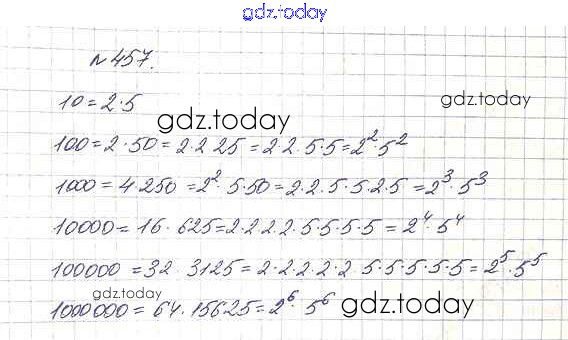 gdz.today
№457.
10=2·5
gdz.today
gdz.today
100=2·50=2·2·25=2·2·5·5=2²·5²
1000=4·250=2²·5·50=2·2·5·5·2·5=2³·5³
10000=16·625=2·2·2·2·5·5·5·5=2⁴·5⁴
100000=32·3125=2·2·2·2·2·5·5·5·5·5=2⁵·5⁵
gdz.today
1000000=64·15625=2⁶·5⁶
gdz.today